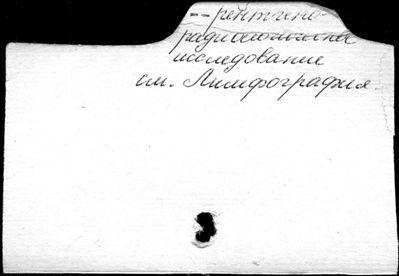 -- рентгено-
радиологическое
исследование
см. Лимфография.